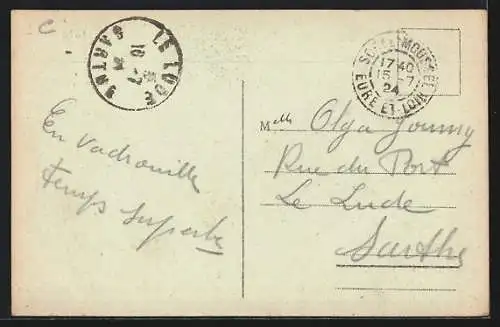 C
LE LUDE
16
7
24
SARTHE
17 40
15-7
24
EURE ET LOIR
En vadrouille
Temps superbe
Melle Olga
Rue du Port
Le Lude
Sarthe